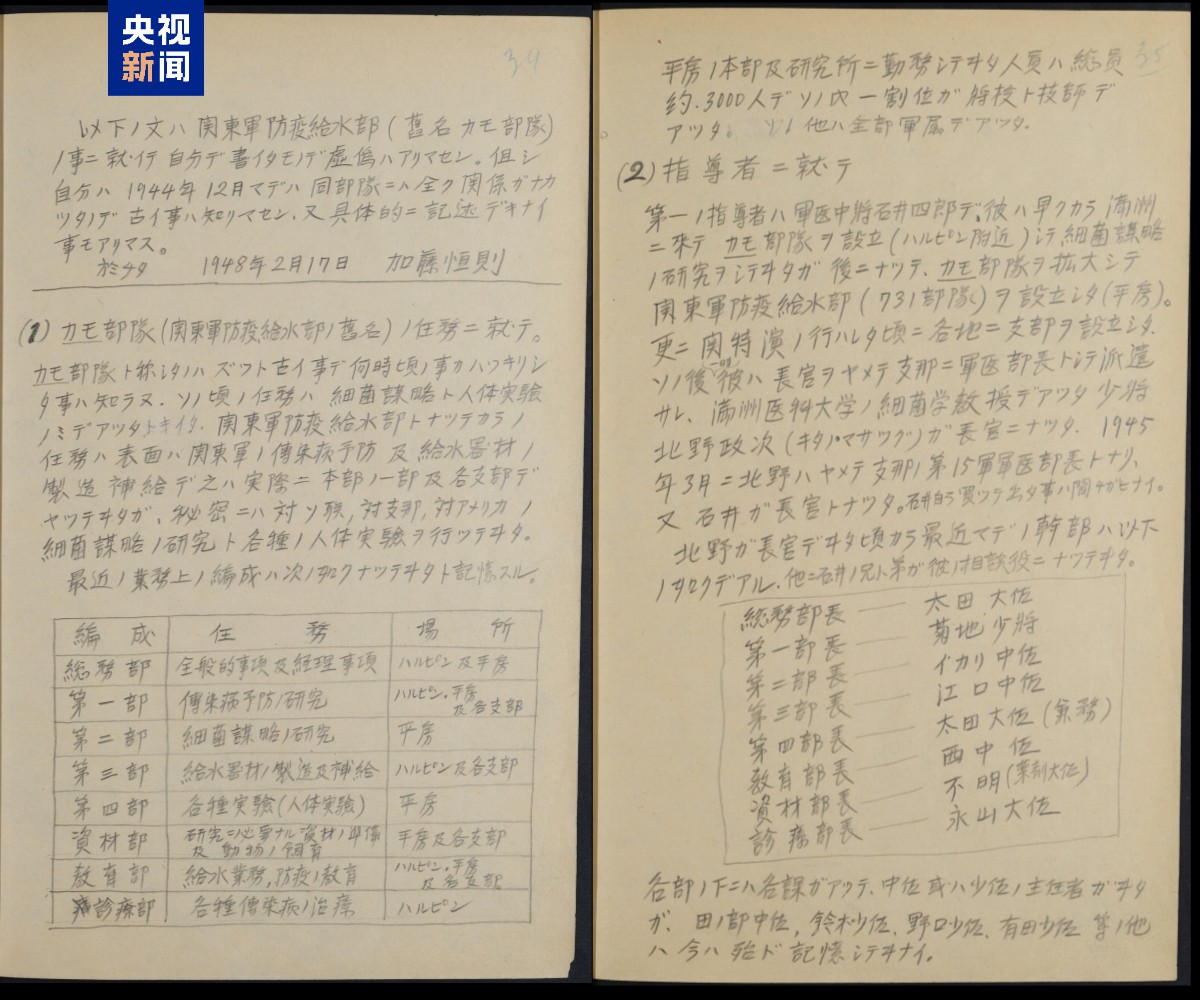 央视
新闻
34
以下ノ文ハ関東軍防疫給水部(舊名カモ部隊)
ノ事ニ就イテ自分デ書イタモノデ虚偽ハアリマセン。但シ
自分ハ1944年12月マデハ同部隊ニハ全ク関係ガナカ
ツタノデ古イ事ハ知リマセン.又具体的ニ記述デキナイ
事モアリマス。
於チタ 1948年2月17日 加藤恒則
(1)カモ部隊(関東軍防疫給水部ノ舊名)ノ任務ニ就テ。
カモ部隊ト称シタノハズツト古イ事デ何時頃ノ事カハツキリシ
タ事ハ知ラヌ.ソノ頃ノ任務ハ細菌謀略ト人体実験
ノミデアツタトキイタ.関東軍防疫給水部トナツテカラノ
任務ハ表面ハ関東軍ノ傳染病予防及給水器材ノ
製造補給デ之ハ実際ニ本部ノ一部及各支部デ
ヤツテヰタガ、秘密ニハ対ソ聯,対支那,対アメリカノ
細菌謀略ノ研究ト各種ノ人体実験ヲ行ツテヰタ。
最近ノ業務上ノ編成ハ次ノ如クナツテヰタト記憶スル。
編成 任務 場所
総務部 全般的事項及経理事項 ハルピン及平房
第一部 傳染病予防ノ研究 ハルピン.平房及各支部
第二部 細菌謀略ノ研究 平房
第三部 給水器材ノ製造及補給 ハルピン及各支部
第四部 各種実験(人体実験) 平房
資材部 研究ニ必要ナル資材ノ準備及動物ノ飼育 平房及各支部
教育部 給水業務,防疫ノ教育 ハルピン.平房及各支部
診療部 各種傳染病ノ治療 ハルピン
35
平房ノ本部及研究所ニ勤務シテヰタ人員ハ総員
約.3000人デソノ内一割位ガ将校ト技師デ
アツタ。ソノ他ハ全部軍属デアツタ.
(2)指導者ニ就テ
第一ノ指導者ハ軍医中将石井四郎デ、彼ハ早クカラ満洲
ニ来テカモ部隊ヲ設立(ハルピン附近)シテ細菌謀略
ノ研究ヲシテヰタガ後ニナツテ、カモ部隊ヲ拡大シテ
関東軍防疫給水部(731部隊)ヲ設立シタ(平房)。
更ニ関特演ノ行ハレタ頃ニ各地ニ支部ヲ設立シタ.
ソノ後彼ハ長官ヲヤメテ支那ニ軍医部長トシテ派遣
サレ、満洲医科大学ノ細菌学教授デアツタ少将
北野政次(キタノマサツグ)ガ長官ニナツタ. 1945
年3月ニ北野ハヤメテ支那ノ第15軍軍医部長トナリ、
又石井ガ長官トナツタ。石井自ラ買ツテ出タ事ハ間チガヒナイ。
北野ガ長官デヰタ頃カラ最近マデノ幹部ハ以下
ノ如クデアル.他ニ石井ノ兄ト弟ガ彼ノ相談役ニナツテヰタ。
総務部長 太田大佐
第一部長 菊地少将
第二部長 イカリ中佐
第三部長 江口中佐
第四部長 太田大佐(兼務)
教育部長 西中佐
資材部長 不明(薬剤大佐)
診療部長 永山大佐
各部ノ下ニハ各課ガアツテ、中佐或ハ少佐ノ主任者ガヰタ
ガ、田ノ部中佐,鈴木少佐、野口少佐、有田少佐等ノ他
ハ今ハ殆ド記憶シテヰナイ。